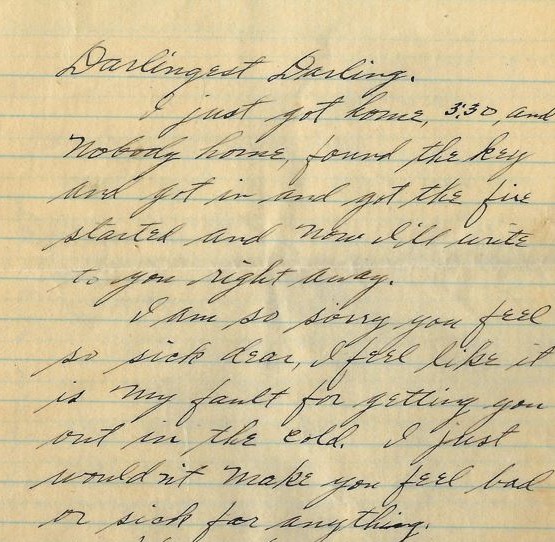 Darlingest Darling.
I just got home, 3:30, and
Nobody home, found the key
and got in and got the fire
started and now I'll write
to you right away.
I am so sorry you feel
so sick dear, I feel like it
is my fault for getting you
out in the cold. I just
wouldn't make you feel bad
or sick for anything.